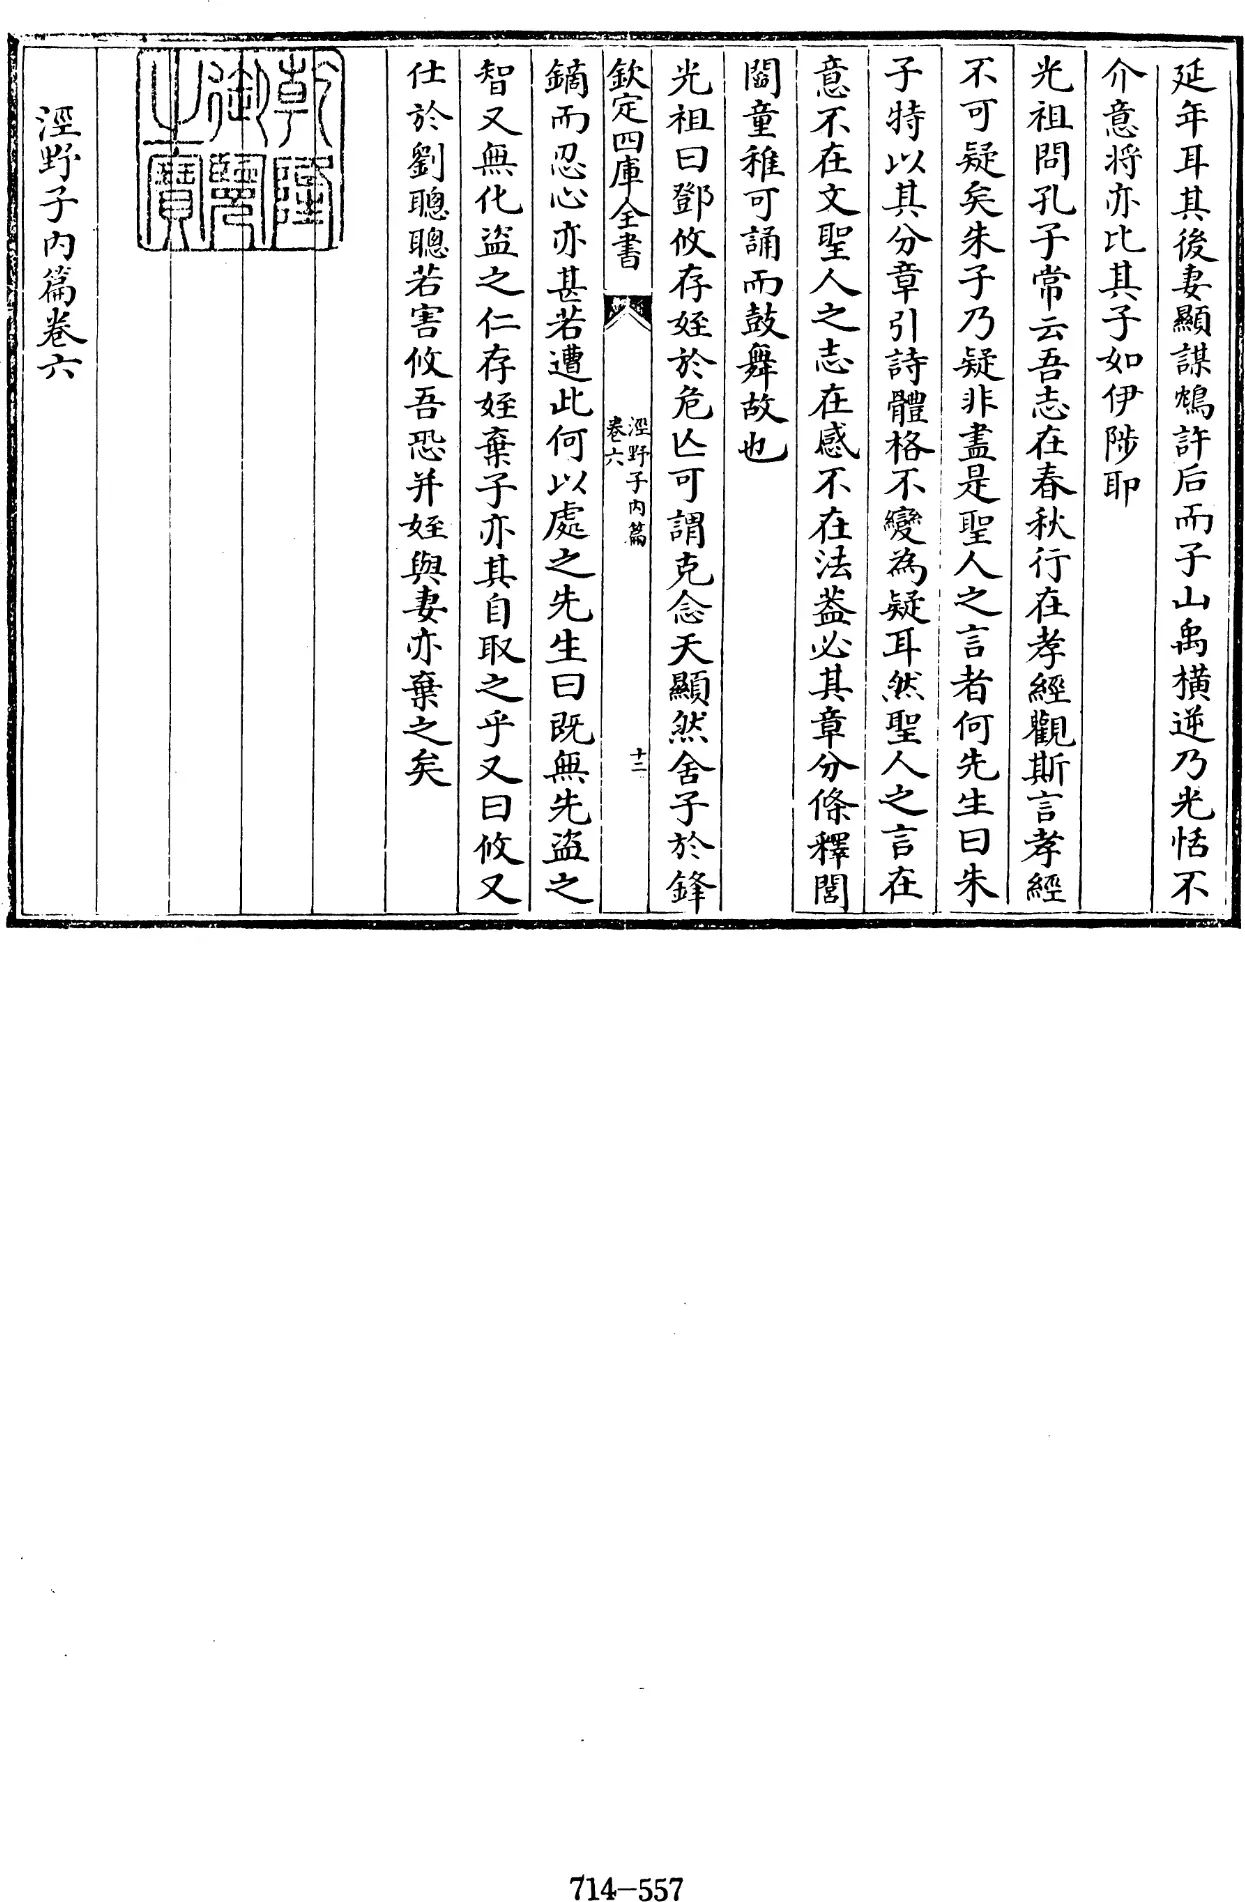 延年耳其後妻顯謀鴆許后而子山禹橫逆乃光恬不
介意將亦比其子如伊陟耶
光祖問孔子常云吾志在春秋行在孝經觀斯言孝經
不可疑矣朱子乃疑非盡是聖人之言者何先生曰朱
子特以其分章引詩體格不變為疑耳然聖人之言在
意不在文聖人之志在感不在法葢必其章分條釋閭
閻童稚可誦而鼓舞故也
光祖曰鄧攸存姪於危亾可謂克念天顯然舍子於鋒
欽定四庫全書
涇野子內篇
卷六
十二
鏑而忍心亦甚若遭此何以處之先生曰既無先盜之
智又無化盜之仁存姪棄子亦其自取之乎又曰攸又
仕於劉聰聰若害攸吾恐并姪與妻亦棄之矣
乾隆
御覽
之寶
涇野子內篇卷六
714-557